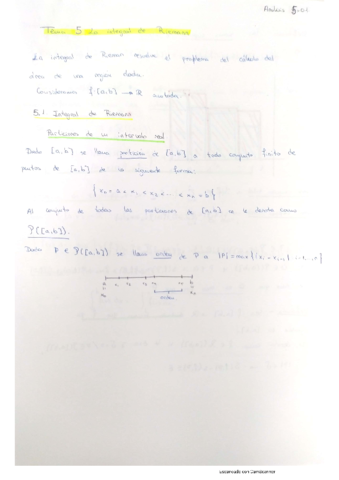 Análisis 5-01
Tema 5 La integral de Riemann
La integral de Riemann resuelve el problema del cálculo del
área de una región dada.
Consideramos f: [a,b] → ℝ acotada.
5.1 Integral de Riemann
Particiones de un intervalo real
Dado [a,b] se llama partición de [a,b] a todo conjunto finito de
puntos de [a,b] de la siguiente forma
{x₀ = a < x₁ < x₂ < ... < xₙ = b}
Al conjunto de todas las particiones de [a,b] se le denota como
P([a,b]).
Dado P ∈ P([a,b]) se llama de P a |P| = max {xᵢ - xᵢ₋₁ | i = 1...n}
a x₁ x₂ x₃ b
x₀ xₙ
Escaneado con CamScanner